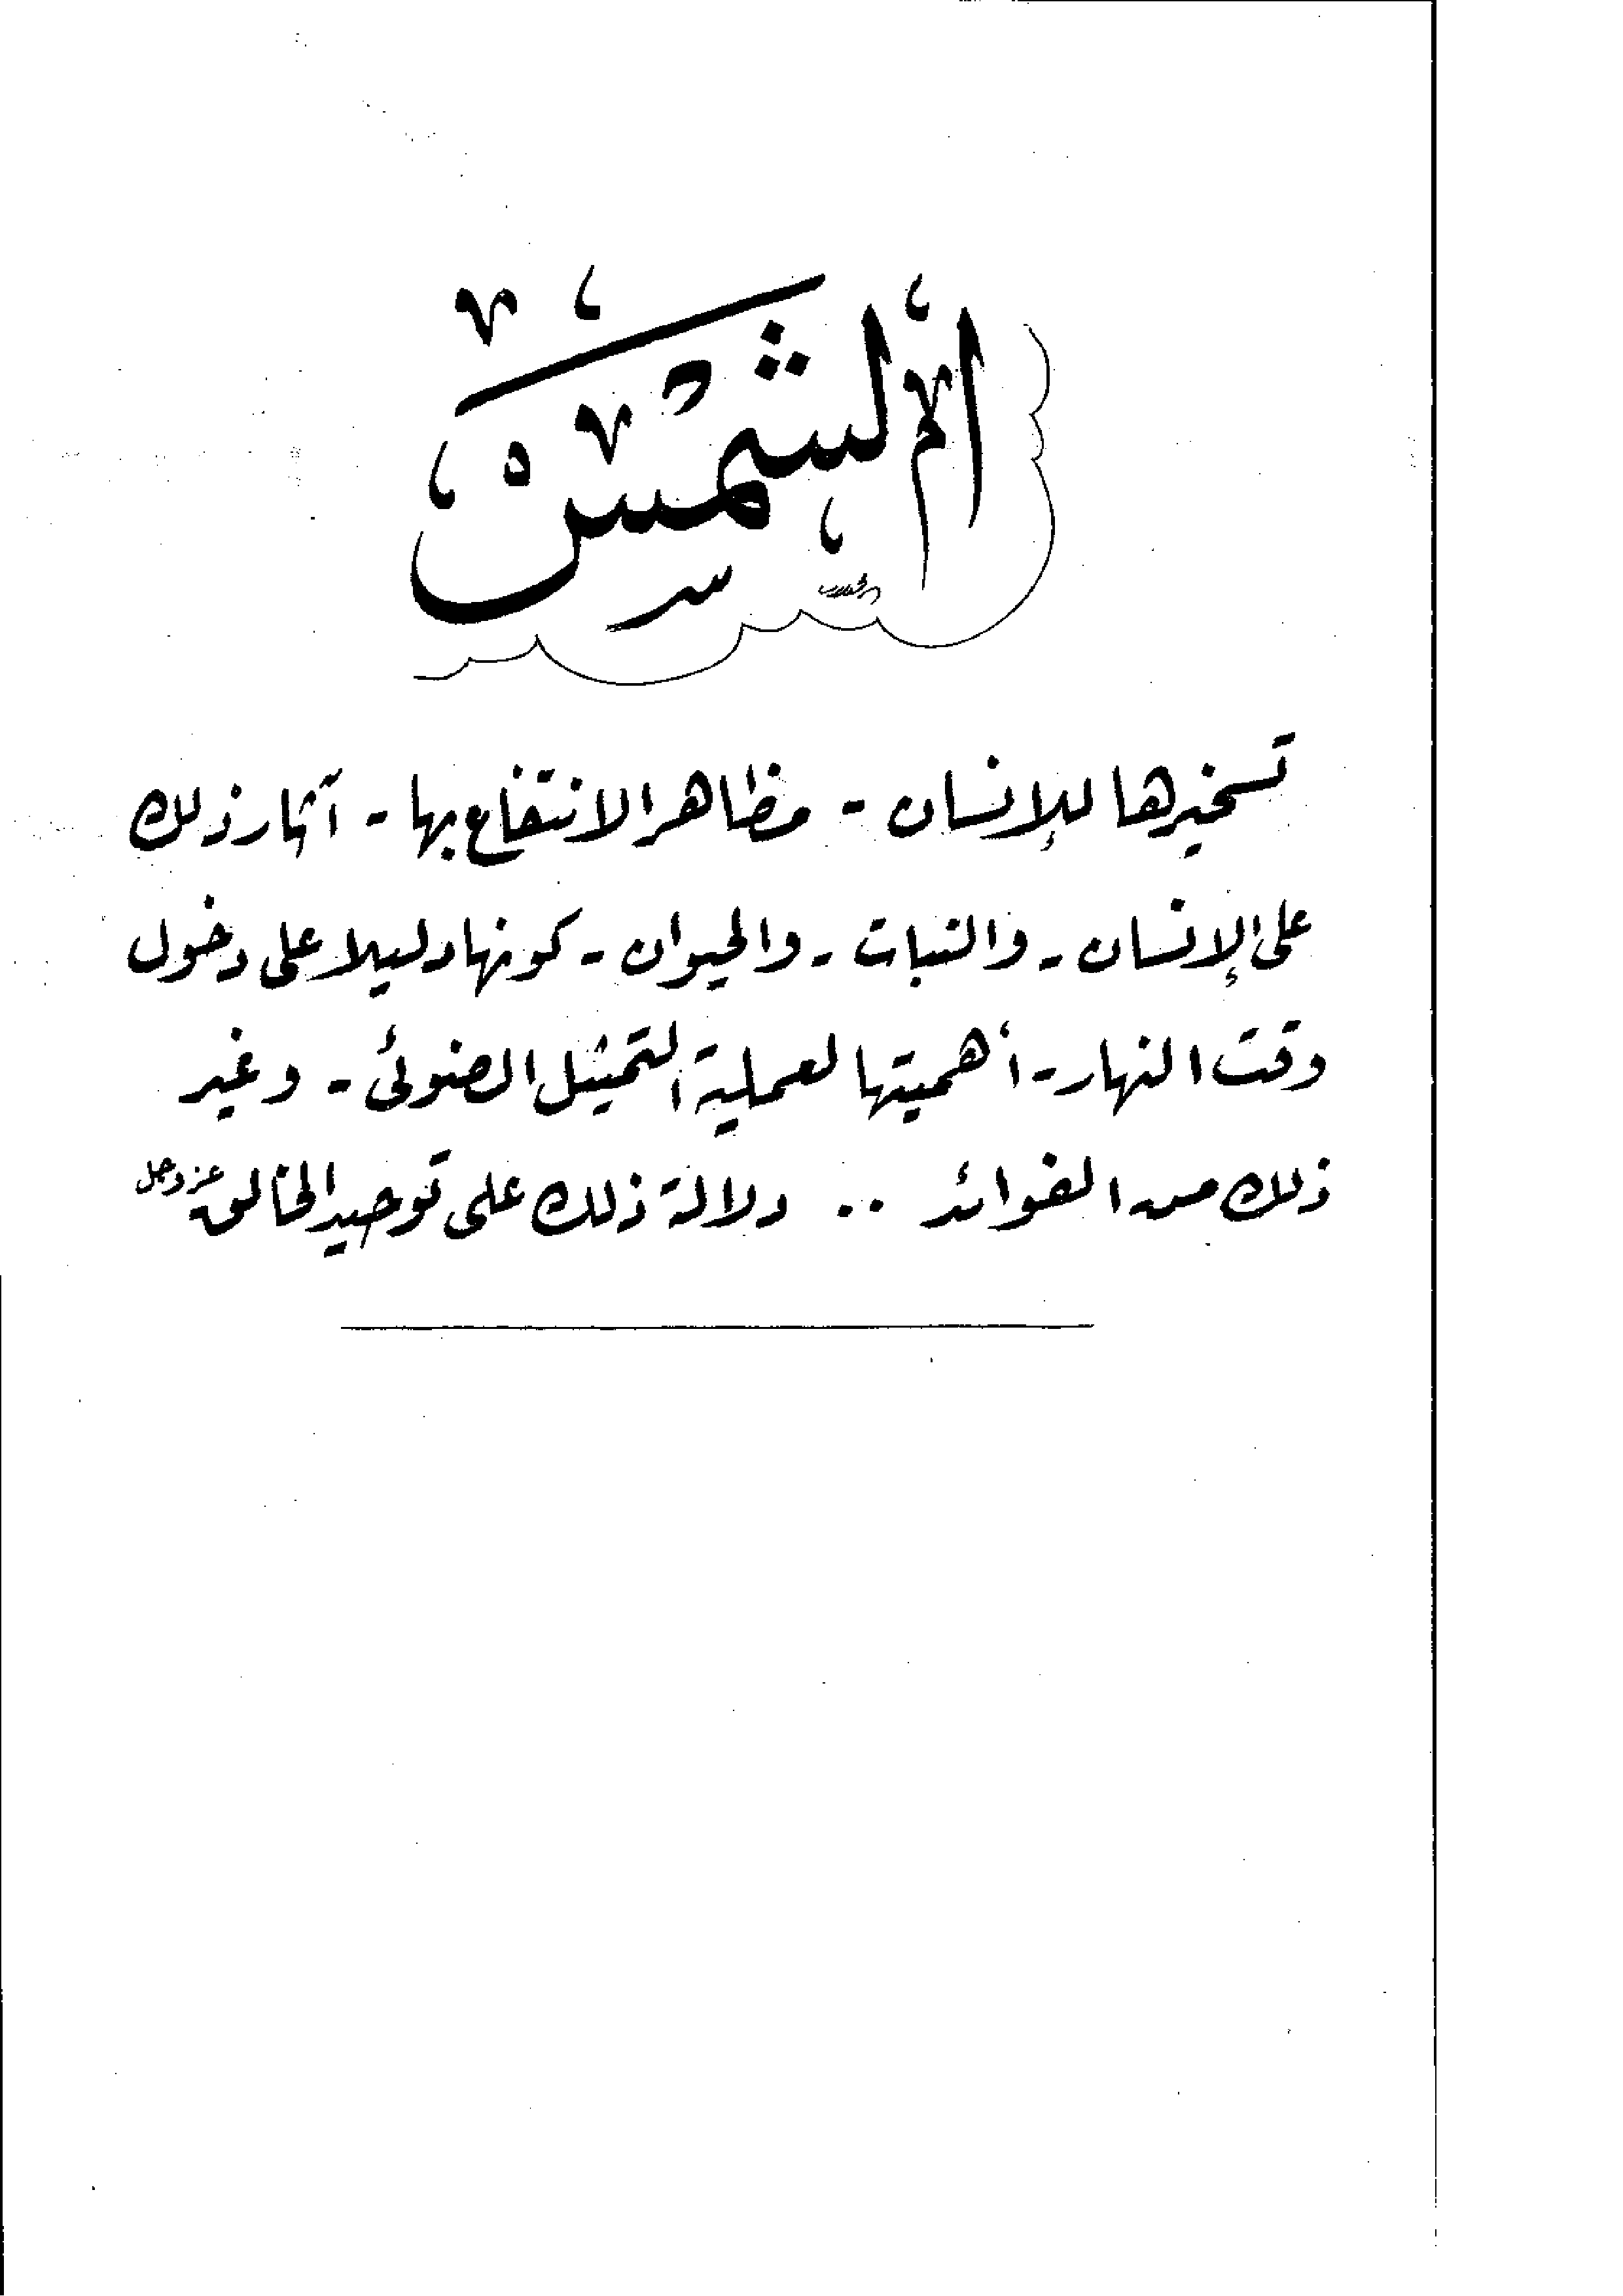 الشمس
تسخيرها للإنسان - مظاهر الانتفاع بها - آثار ذلك
على الإنسان - والنبات - والحيوان - كونها دليلا على دخول
وقت النهار - أهميتها لعملية التمثيل الضوئى - وغير
ذلك من الفوائد .. دلالة ذلك على توحيد الخالق عز وجل